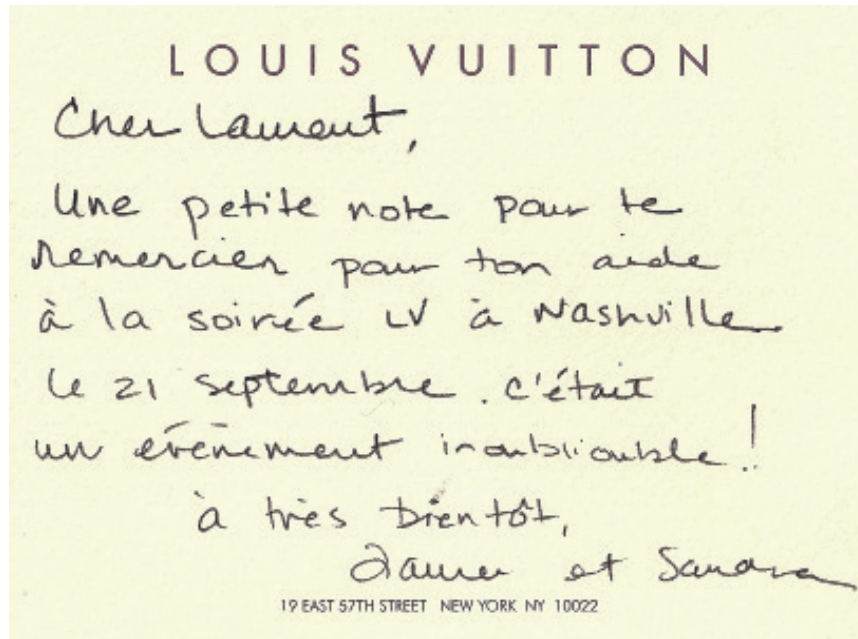 LOUIS VUITTON
Cher Laurent,
Une petite note pour te
remercier pour ton aide
à la soirée LV à Nashville
le 21 septembre. C'était
un évènement inoubliable!
à très bientôt,
et Sandra
19 EAST 57TH STREET NEW YORK NY 10022